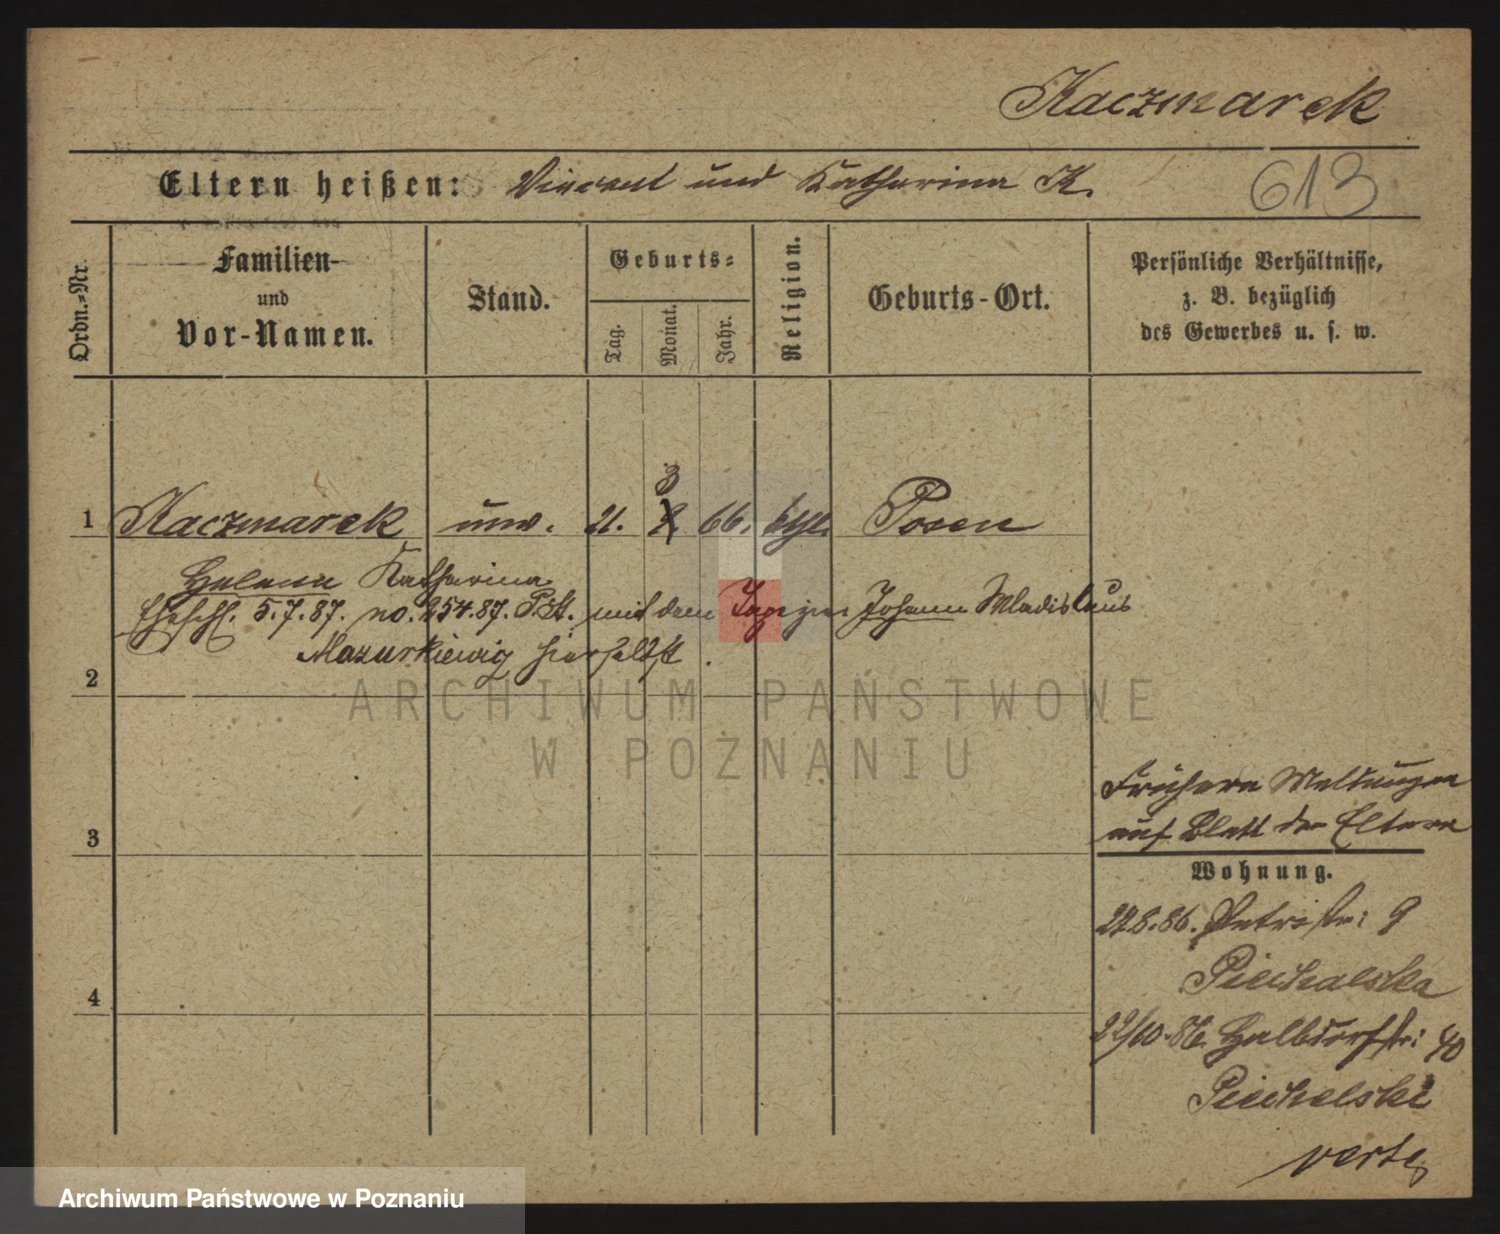 Kaczmarek
Eltern heißen: Vincent und Katharina K.
613
Ordn.=Nr.
Familien-
und
Vor-Namen.
Stand.
Geburts=
Tag.
Monat.
Jahr.
Religion.
Geburts-Ort.
Persönliche Verhältnisse,
z. B. bezüglich
des Gewerbes u. s. w.
3
1 Kaczmarek unv. 21. 66. kthl. Posen
Helena Katharina
Eheschl. 5.7.87. no. 254.87. P.St. mit dem Johann Wladislaus
Mazurkiewicz hierselbst.
2
ARCHIWUM PAŃSTWOWE
W POZNANIU
Frühere Meldungen
auf Blatt der Eltern
3
Wohnung.
22.8.86. Petristr: 9
Piechalska
4
22/10.86. Halbdorfstr: 40
Piechelski
verte
Archiwum Państwowe w Poznaniu